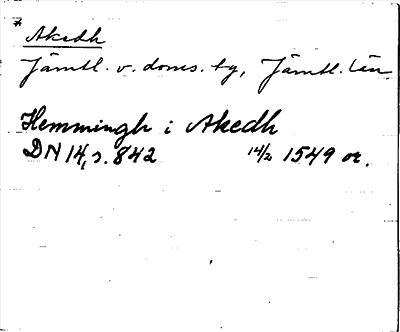 * Akedh
Jämtl. v. doms. by, Jämtl. län
Hemmingh i Akedh
DN 14, s. 842 14/2 1549 or.